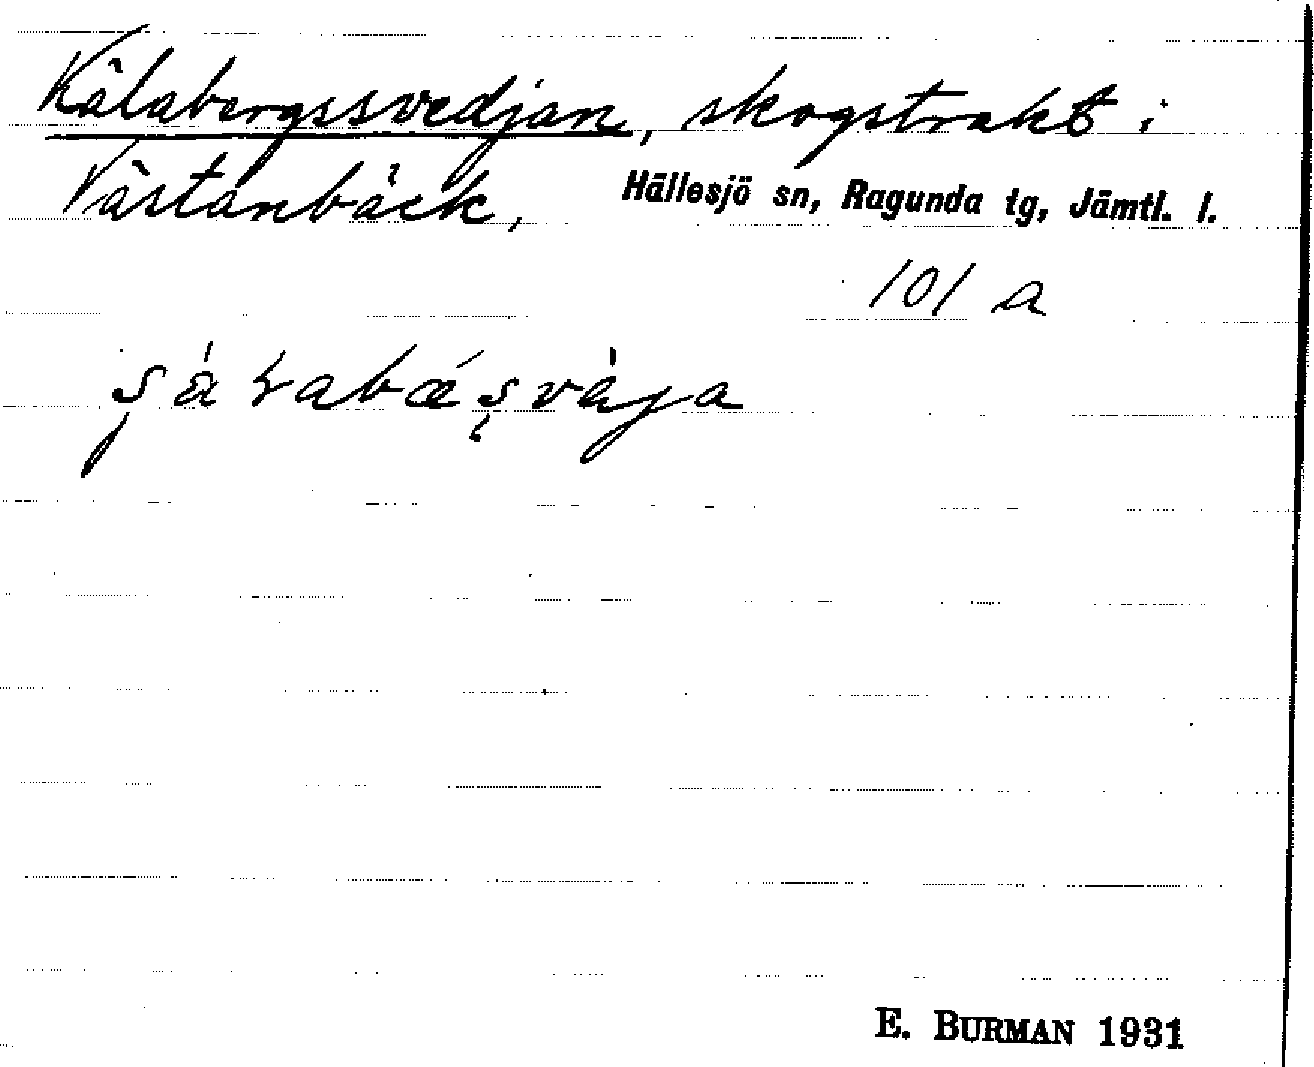 Kälabergssvedjan, skogstrakt i
Västanbäck, Hällesjö sn, Ragunda tg, Jämtl. l.
101 a
E. BURMAN 1931